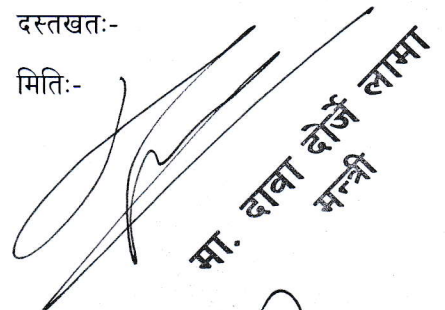 दस्तखतः-
मितिः-
मा. दावा दोर्जे लामा
मन्त्री